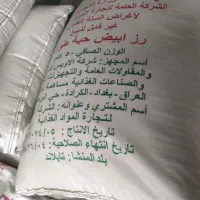 الشركة العامة لتجارة
لأغراض السلة
غير قابل
رز ابيض حبة
الوزن الصافي ٥٠
أسم المجهز: شركة الأويس
والمقاولات العامة والتجهيزات
والصناعات الغذائية مساهمة
العراق-بغداد-الكرادة
أسم المشتري وعنوانه: الشركة
لتجارة المواد الغذائية
تاريخ الانتاج: ٢٠٢٤/٠٥
تاريخ انتهاء الصلاحية:
بلد المنشأ: تايلاند